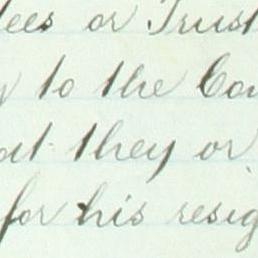 ees or Trust
y to the Co
at they or
for his resig